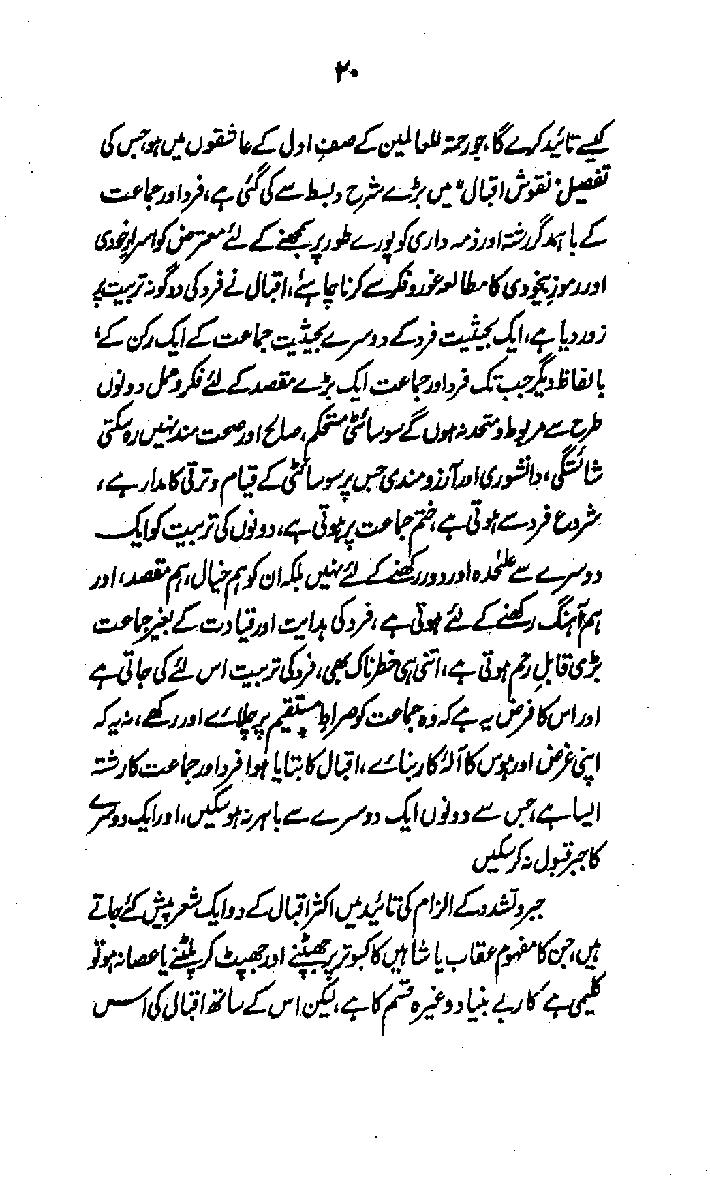 ۲۰
کیسے تائید کرے گا، جو رحمۃ للعالمین کے صفِ اول کے عاشقوں میں ہو، جس کی
تفصیل "نقوش اقبال" میں بڑے شرح و بسط سے کی گئی ہے، فرد اور جماعت
کے باہمدگر رشتہ اور ذمہ داری کو پورے طور پر سمجھنے کے لئے معترض کو اسرارِ خودی
اور رموزِ بیخودی کا مطالعہ غور و فکر سے کرنا چاہئے، اقبال نے فرد کی دو گونہ تربیت پر
زور دیا ہے، ایک بحیثیت فرد کے دوسرے بحیثیت جماعت کے ایک رکن کے،
بالفاظ دیگر جب تک فرد اور جماعت ایک بڑے مقصد کے لئے فکر و عمل دونوں
طرح سے مربوط و متحد نہ ہوں گے سوسائٹی مستحکم، صالح اور صحت مند نہیں رہ سکتی
شائستگی، دانشوری اور آرزومندی جس پر سوسائٹی کے قیام و ترقی کا مدار ہے،
شروع فرد سے ہوتی ہے، ختم جماعت پر ہوتی ہے، دونوں کی تربیت کو ایک
دوسرے سے علٰحدہ اور دور رکھنے کے لئے نہیں بلکہ ان کو ہم خیال، ہم مقصد، اور
ہم آہنگ رکھنے کے لئے ہوتی ہے، فرد کی ہدایت اور قیادت کے بغیر جماعت
بڑی قابلِ رحم ہوتی ہے، اتنی ہی خطرناک بھی، فرد کی تربیت اس لئے کی جاتی ہے
اور اس کا فرض یہ ہے کہ وہ جماعت کو صراطِ مستقیم پر چلائے اور رکھے، نہ یہ کہ
اپنی غرض اور ہوس کا آلۂ کار بنائے، اقبال کا بتایا ہوا فرد اور جماعت کا رشتہ
ایسا ہے، جس سے دونوں ایک دوسرے سے باہر نہ ہو سکیں، اور ایک دوسرے
کا جبر قبول نہ کر سکیں
جبر و تشدد کے الزام کی تائید میں اکثر اقبال کے دو ایک شعر پیش کئے جاتے
ہیں، جن کا مفہوم عقاب یا شاہیں کا کبوتر پر جھپٹنے اور جھپٹ کر پلٹنے یا عصا نہ ہو تو
کلیمی ہے کار بے بنیاد وغیرہ قسم کا ہے، لیکن اس کے ساتھ اقبال کی اس